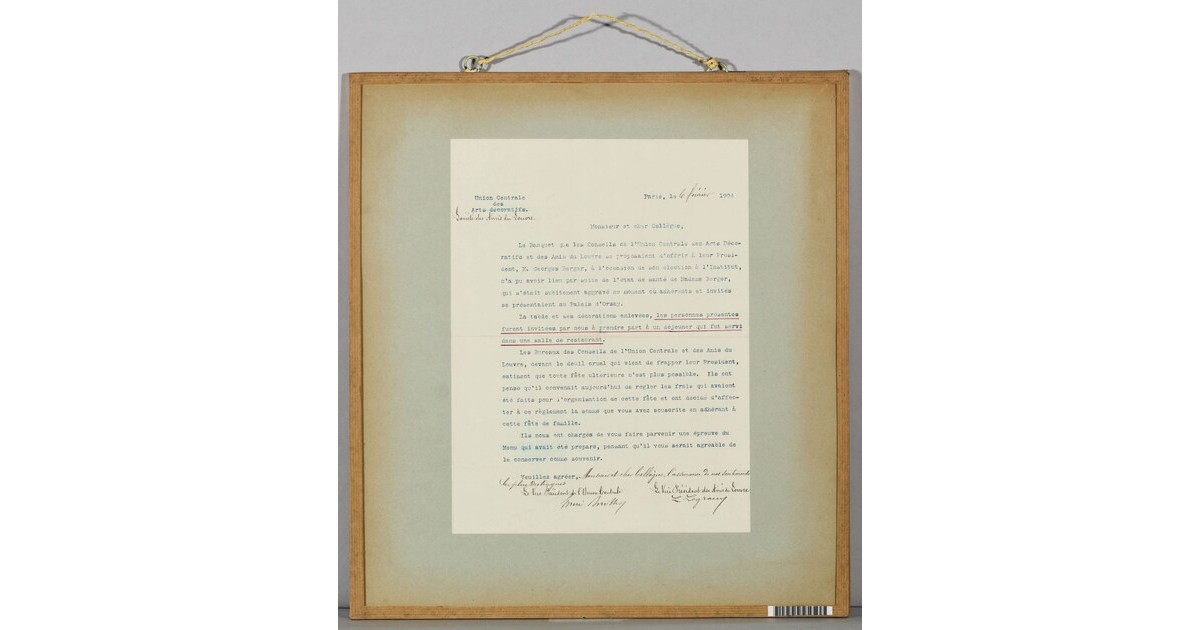 Union Centrale
des
Arts Décoratifs.
Société des Amis du Louvre
Paris, le 6 février 190
Monsieur et cher Collègue,
Le Banquet que les Conseils de l'Union Centrale des Arts Déco-
ratifs et des Amis du Louvre se proposaient d'offrir à leur Prési-
dent, M. Georges Berger, à l'occasion de son élection à l'Institut,
n'a pu avoir lieu par suite de l'état de santé de Madame Berger,
qui s'était subitement aggravé au moment où adhérents et invités
se présentaient au Palais d'Orsay.
La table et ses décorations enlevées, les personnes présentes
furent invitées par nous à prendre part à un déjeuner qui fut servi
dans une salle de restaurant.
Les Bureaux des Conseils de l'Union Centrale et des Amis du
Louvre, devant le deuil cruel qui vient de frapper leur Président,
estiment que toute fête ultérieure n'est plus possible. Ils ont
pensé qu'il convenait aujourd'hui de régler les frais qui avaient
été faits pour l'organisation de cette fête et ont décidé d'affec-
ter à ce règlement la somme que vous avez souscrite en adhérant à
cette fête de famille.
Ils nous ont chargés de vous faire parvenir une épreuve du
Menu qui avait été préparé, pensant qu'il vous serait agréable de
le conserver comme souvenir.
Veuillez agréer, Monsieur et cher Collègue, l'assurance de nos sentiments
les plus distingués
Le Vice Président de l'Union Centrale
Le Vice Président des Amis du Louvre
L. Legrand